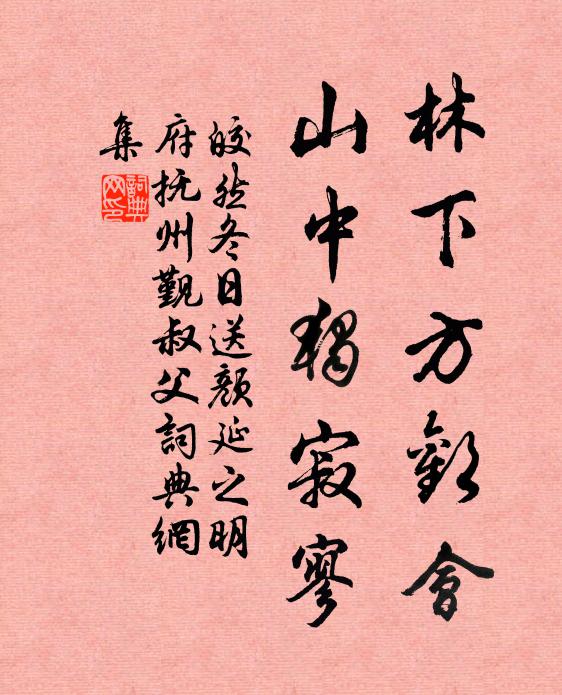 林下方歡會
山中獨寂寥
皎然冬日送顏延之明
府抚州覲叔父詞典網
集
詞典
网印